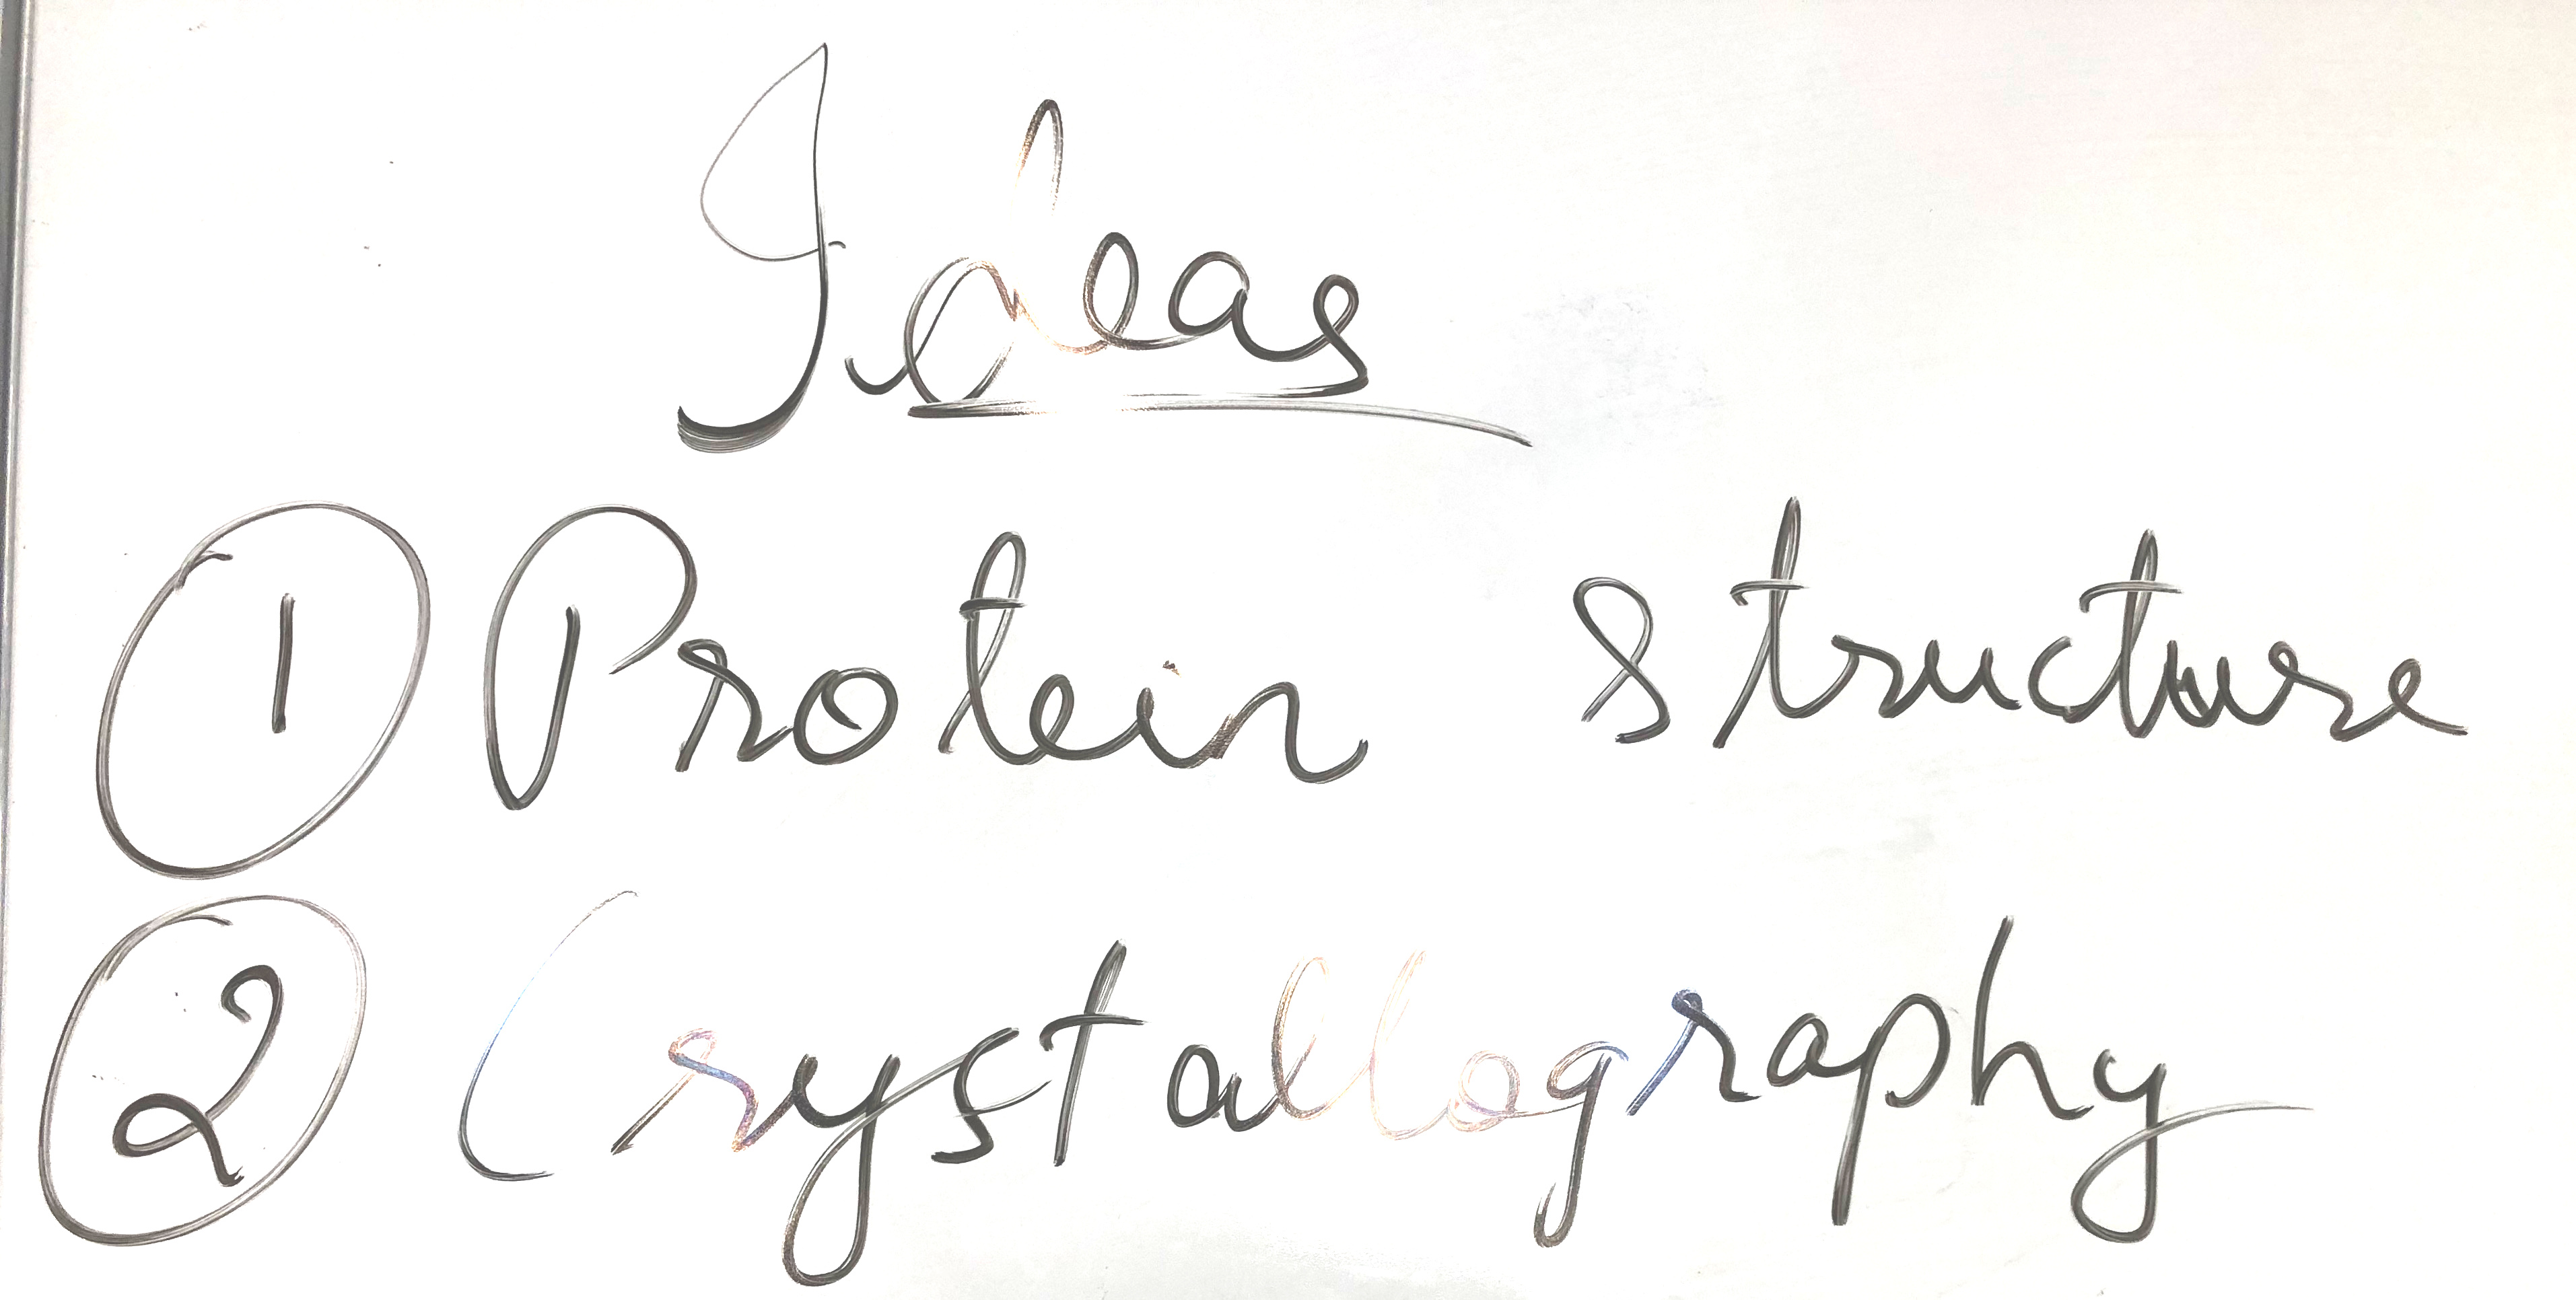 Ideas
① Protein structure
② Crystallography